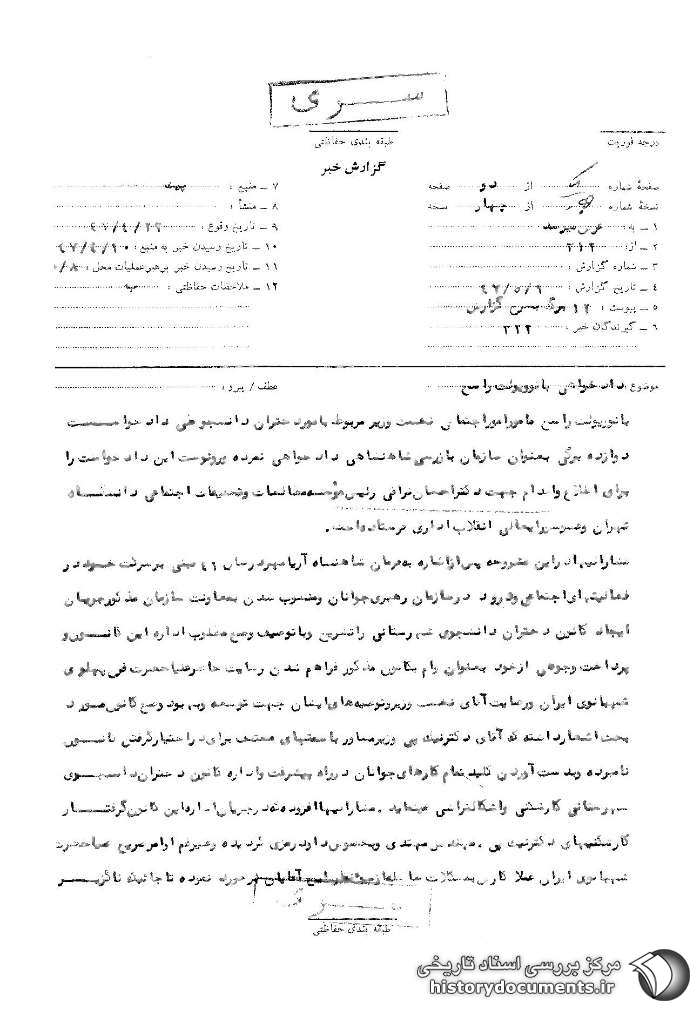 سری
طبقه بندی حفاظتی
درجه فوریت
گزارش خبر
صفحهٔ شماره یک از دو صفحه
نسخهٔ شماره از چهار نسخه
۱ ـ به : عرض میرسد
۲ ـ از : ۳۱۲
۳ ـ شماره گزارش :
۴ ـ تاریخ گزارش : ۴۷/۵/۶
۵ ـ پیوست : ۱۲ برگ گزارش
۶ ـ گیرندگان خبر : ۳۲۲
۷ ـ منبع :
۸ ـ منشأ :
۹ ـ تاریخ وقوع : ۴۷/۴/۲۲
۱۰ ـ تاریخ رسیدن خبر به منبع :
۱۱ ـ تاریخ رسیدن خبر برهبر عملیات محل :
۱۲ ـ ملاحظات حفاظتی :
موضوع : دادخواهی بانو پوئت راسخ
عطف / پیرو :
بانو پوئت راسخ مامور امور اجتماعی نخست وزیر مربوط بامور دختران دانشجو طی دادخواست
دوازده برگی بعنوان سازمان بازرسی شاهنشاهی دادخواهی نموده و رونوشت این دادخواست را
برای اطلاع و اقدام جهت دکتر احسان نراقی رئیس مؤسسه مطالعات و تحقیقات اجتماعی دانشگاه
تهران و انقلاب اداری فرستاده است.
مشارالیها در این مشروحه پس از اشاره به فرمان شاهنشاه آریامهر در سال ۴۶ مبنی بر شرکت خود در
فعالیتهای اجتماعی و ورود در سازمان رهبری جوانان و منصوب شدن بمعاونت سازمان مذکور جریان
ایجاد کانون دختران دانشجوی شهرستانی را تشریح و با توصیف وضع مطلوب اداره این کانون و
پرداخت وجوهی از خود بعنوان وام بکانون مذکور فراهم شدن رضایت خاطر علیاحضرت فرح پهلوی
شهبانوی ایران و رضایت آقای نخست وزیر و توصیه های ایشان جهت توسعه و بهبود وضع کانون مورد
بحث اشعار داشته که آقای دکتر نیک پی وزیر مشاور با سعیهای مختلف برای در اختیار گرفتن کانون
نامبرده و بدست آوردن کلید تمام کارهای جوانان در راه پیشرفت و اداره کانون دختران دانشجوی
شهرستانی کارشکنی و اشکالتراشی مینماید. مشارالیها افزوده که در جریان اداره این کانون گرفتار
کارشکنیهای دکتر نیک پی، مهندس مهتدی و بخصوص داود رمزی گردیده و علیرغم اوامر صریح علیاحضرت
شهبانوی ایران عملا کار بمشکلات آقایان مورد نموده تا جائیکه ناگزیر
سری
طبقه بندی حفاظتی
مرکز بررسی اسناد تاریخی
historydocuments.ir